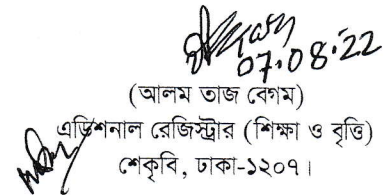 07.08.22
(আলম তাজ বেগম)
এডিশনাল রেজিস্ট্রার (শিক্ষা ও বৃত্তি)
শেকৃবি, ঢাকা-১২০৭।